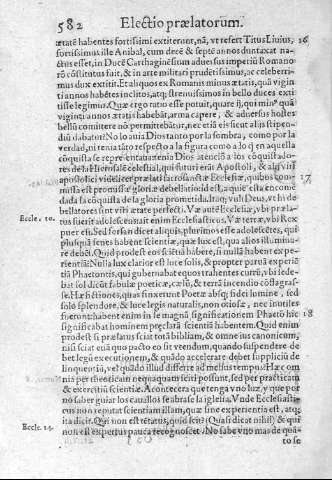 582 Electio prælatorum.
ætatē habentes fortissimi extiterunt, nā, vt refert Titus Liuius, 16
fortissimus ille Anibal, cum decē & septē annos duntaxat na-
ctus esset, in Ducē Carthaginēsium aduersus imperiū Romano-
rū cōstitutus fuit, & in arte militari prudētissimus, ac celeberri-
mus dux extitit. Et aliquos ex Romanis minus ætatis, quā vigin
ti annos habētes inclitos, atq; strenuissimos in bello duces exti
tisse legimus. Quæ ergo ratio esse potuit, quare ij, qui minꝰ quā
viginti annos ætatis habebāt, arma capere, & aduersus hostes
bellū comittere nō permittebātur, nec etiā eis sicut alijs stipen-
diū dabatur? No lo auia Dios tanto por la sombra, como por la
verdad, ni tenia tāto respecto a la figura como a lo q̄ en aquella
cōquista se representaua: tenia Dios atenciō a los cōquistado-
res de la Hierusalē celestial, qui futuri erāt Apostoli, &
apostolici videlicet prælati sacrosanctæ Ecclesiæ, quibus com- 17
missa est promissæ gloriæ debellatio: id est, a quiē esta encomē
dada la cōquista de la gloria prometida. Itaq; vult Deus, vt hi de
bellatores sint viri ætate perfecti. Væ autē Ecclesiæ, vbi præla-
Eccle. 10. tus fuerit adolescens: ait enim Ecclesiasticus. Væ terræ, vbi Rex
puer est. Sed forsan dicet aliquis, plurimos esse adolescētes, qui
plusquā senes habent scientiæ, quæ lux est, qua alios illumina-
re debēt. Quid prodest eos scientiā habere, si nullā habent expe-
rientiā: Nulla lux clarior est luce solis, & propter paruā experiē
tiā Phaetontis, qui gubernabat equos trahentes currū, vbi sede-
bat sol dicūt fabulæ poeticæ, cœlū, & terrā incendio cōflagras-
se. Hæ fictiones, quas finxerunt Poetæ absq; fidei lumine, sed
solo splendore, & luce legis naturalis, non otiosæ, nec inutiles
fuerunt: habent enim in se magnā significationem Phaetō hic 18
significabat hominem præclarā scientiā habentem. Quid enim
prodest si prælatus sciat totā bibliam, & omne ius canonicum,
nisi sciat euā quo pacto eo sit vtendum, quando suspendere de
bet legū executionem, & quādo accelerare debet suppliciū de
linquentis, vel quādo illud differre ad melius tempus? Hæc om
nia per theoricam nequaquam sciri possunt, sed per practicam
& exercitiū scientiæ. Acontecera que tenga vno luz, y que por
no saber guiar los cauallos se abrase la iglesia. Vnde Ecclesiasti-
cus non reputat scientiam illam, quæ sine experientia est, atq;
Eccle. 34. ita dicit. Qui non est tētatus, quid scit? (Quasi dicat nihil) & qui
non est expertus pauca recognoscet. No sabe vno mas de quā-
to se